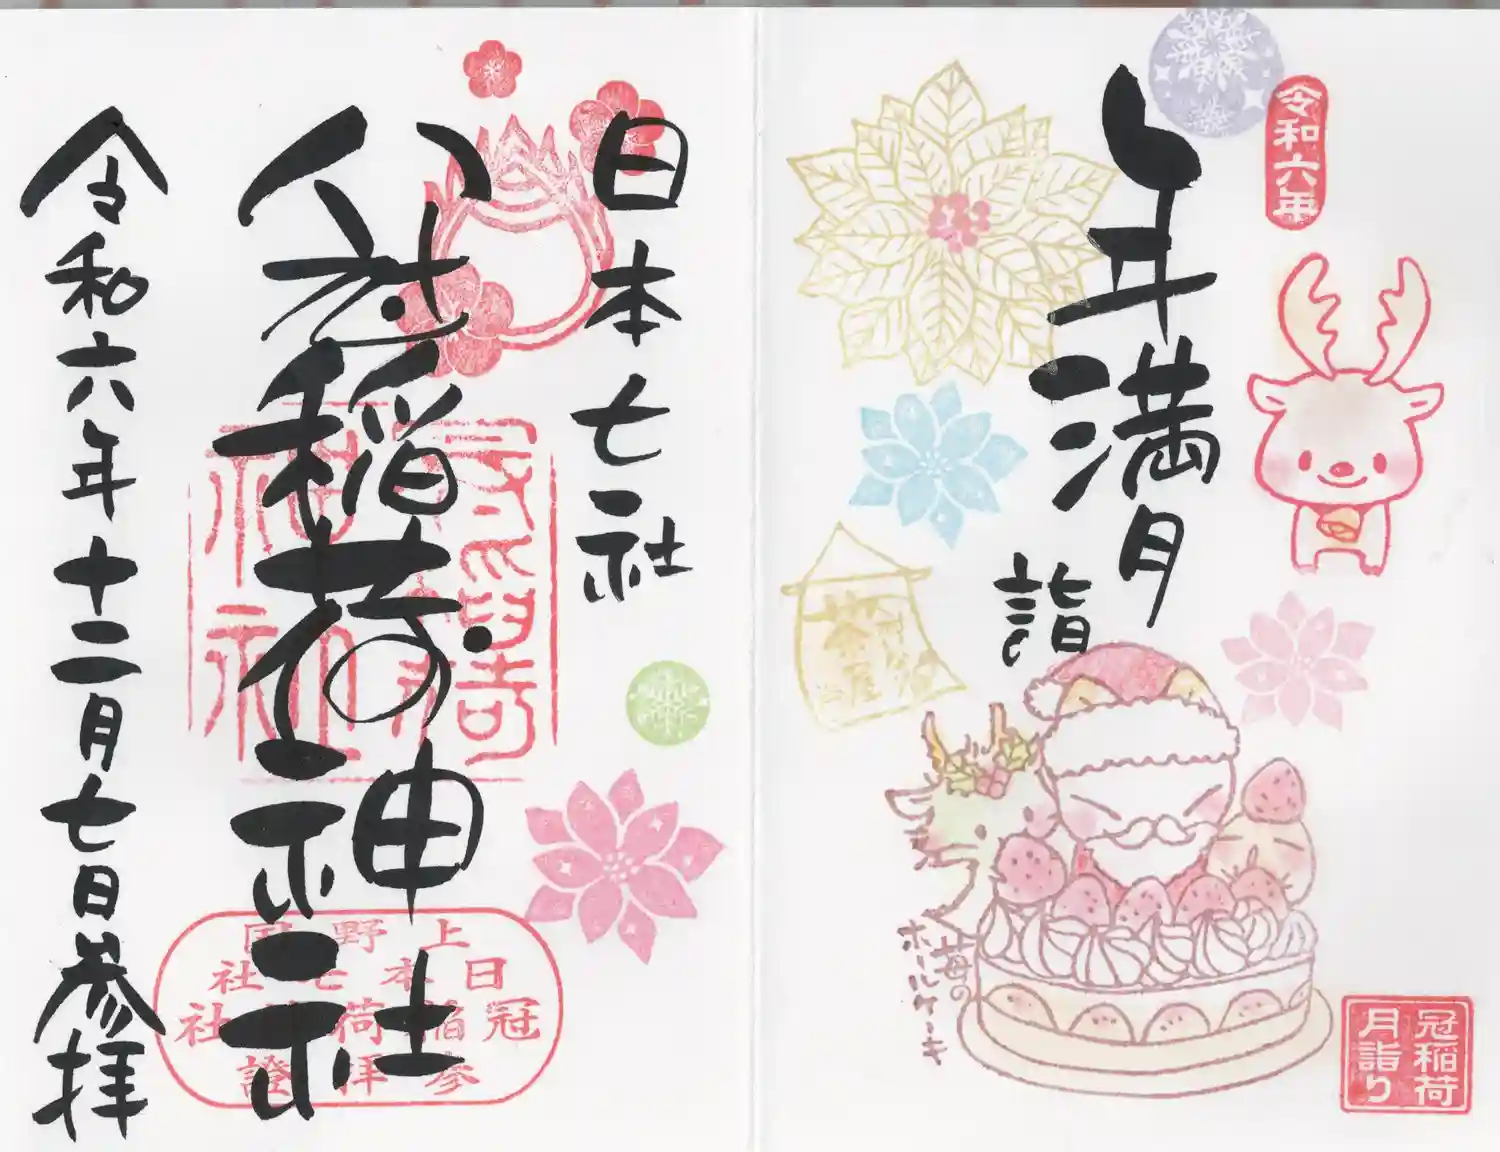 令和六年
年満月
詣
茶屋
苺の
ホールケーキ
冠稲荷
月詣り
日本七社
冠稲荷神社
上野国
日本七社
冠稲荷神社
参拝證
令和六年十二月七日参拝